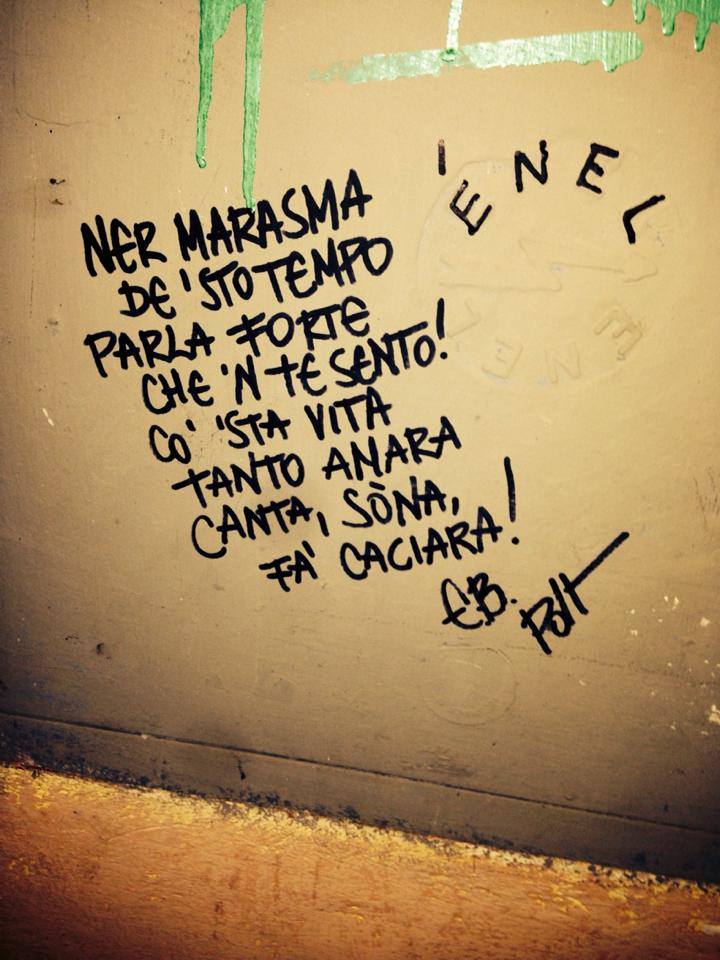 'ENEL
NER MARASMA
DE 'STO TEMPO
PARLA FORTE
CHE 'N TE SENTO!
CO' 'STA VITA
TANTO AMARA
CANTA, SÒNA,
FA' CACIARA!
E.B.
ENEL